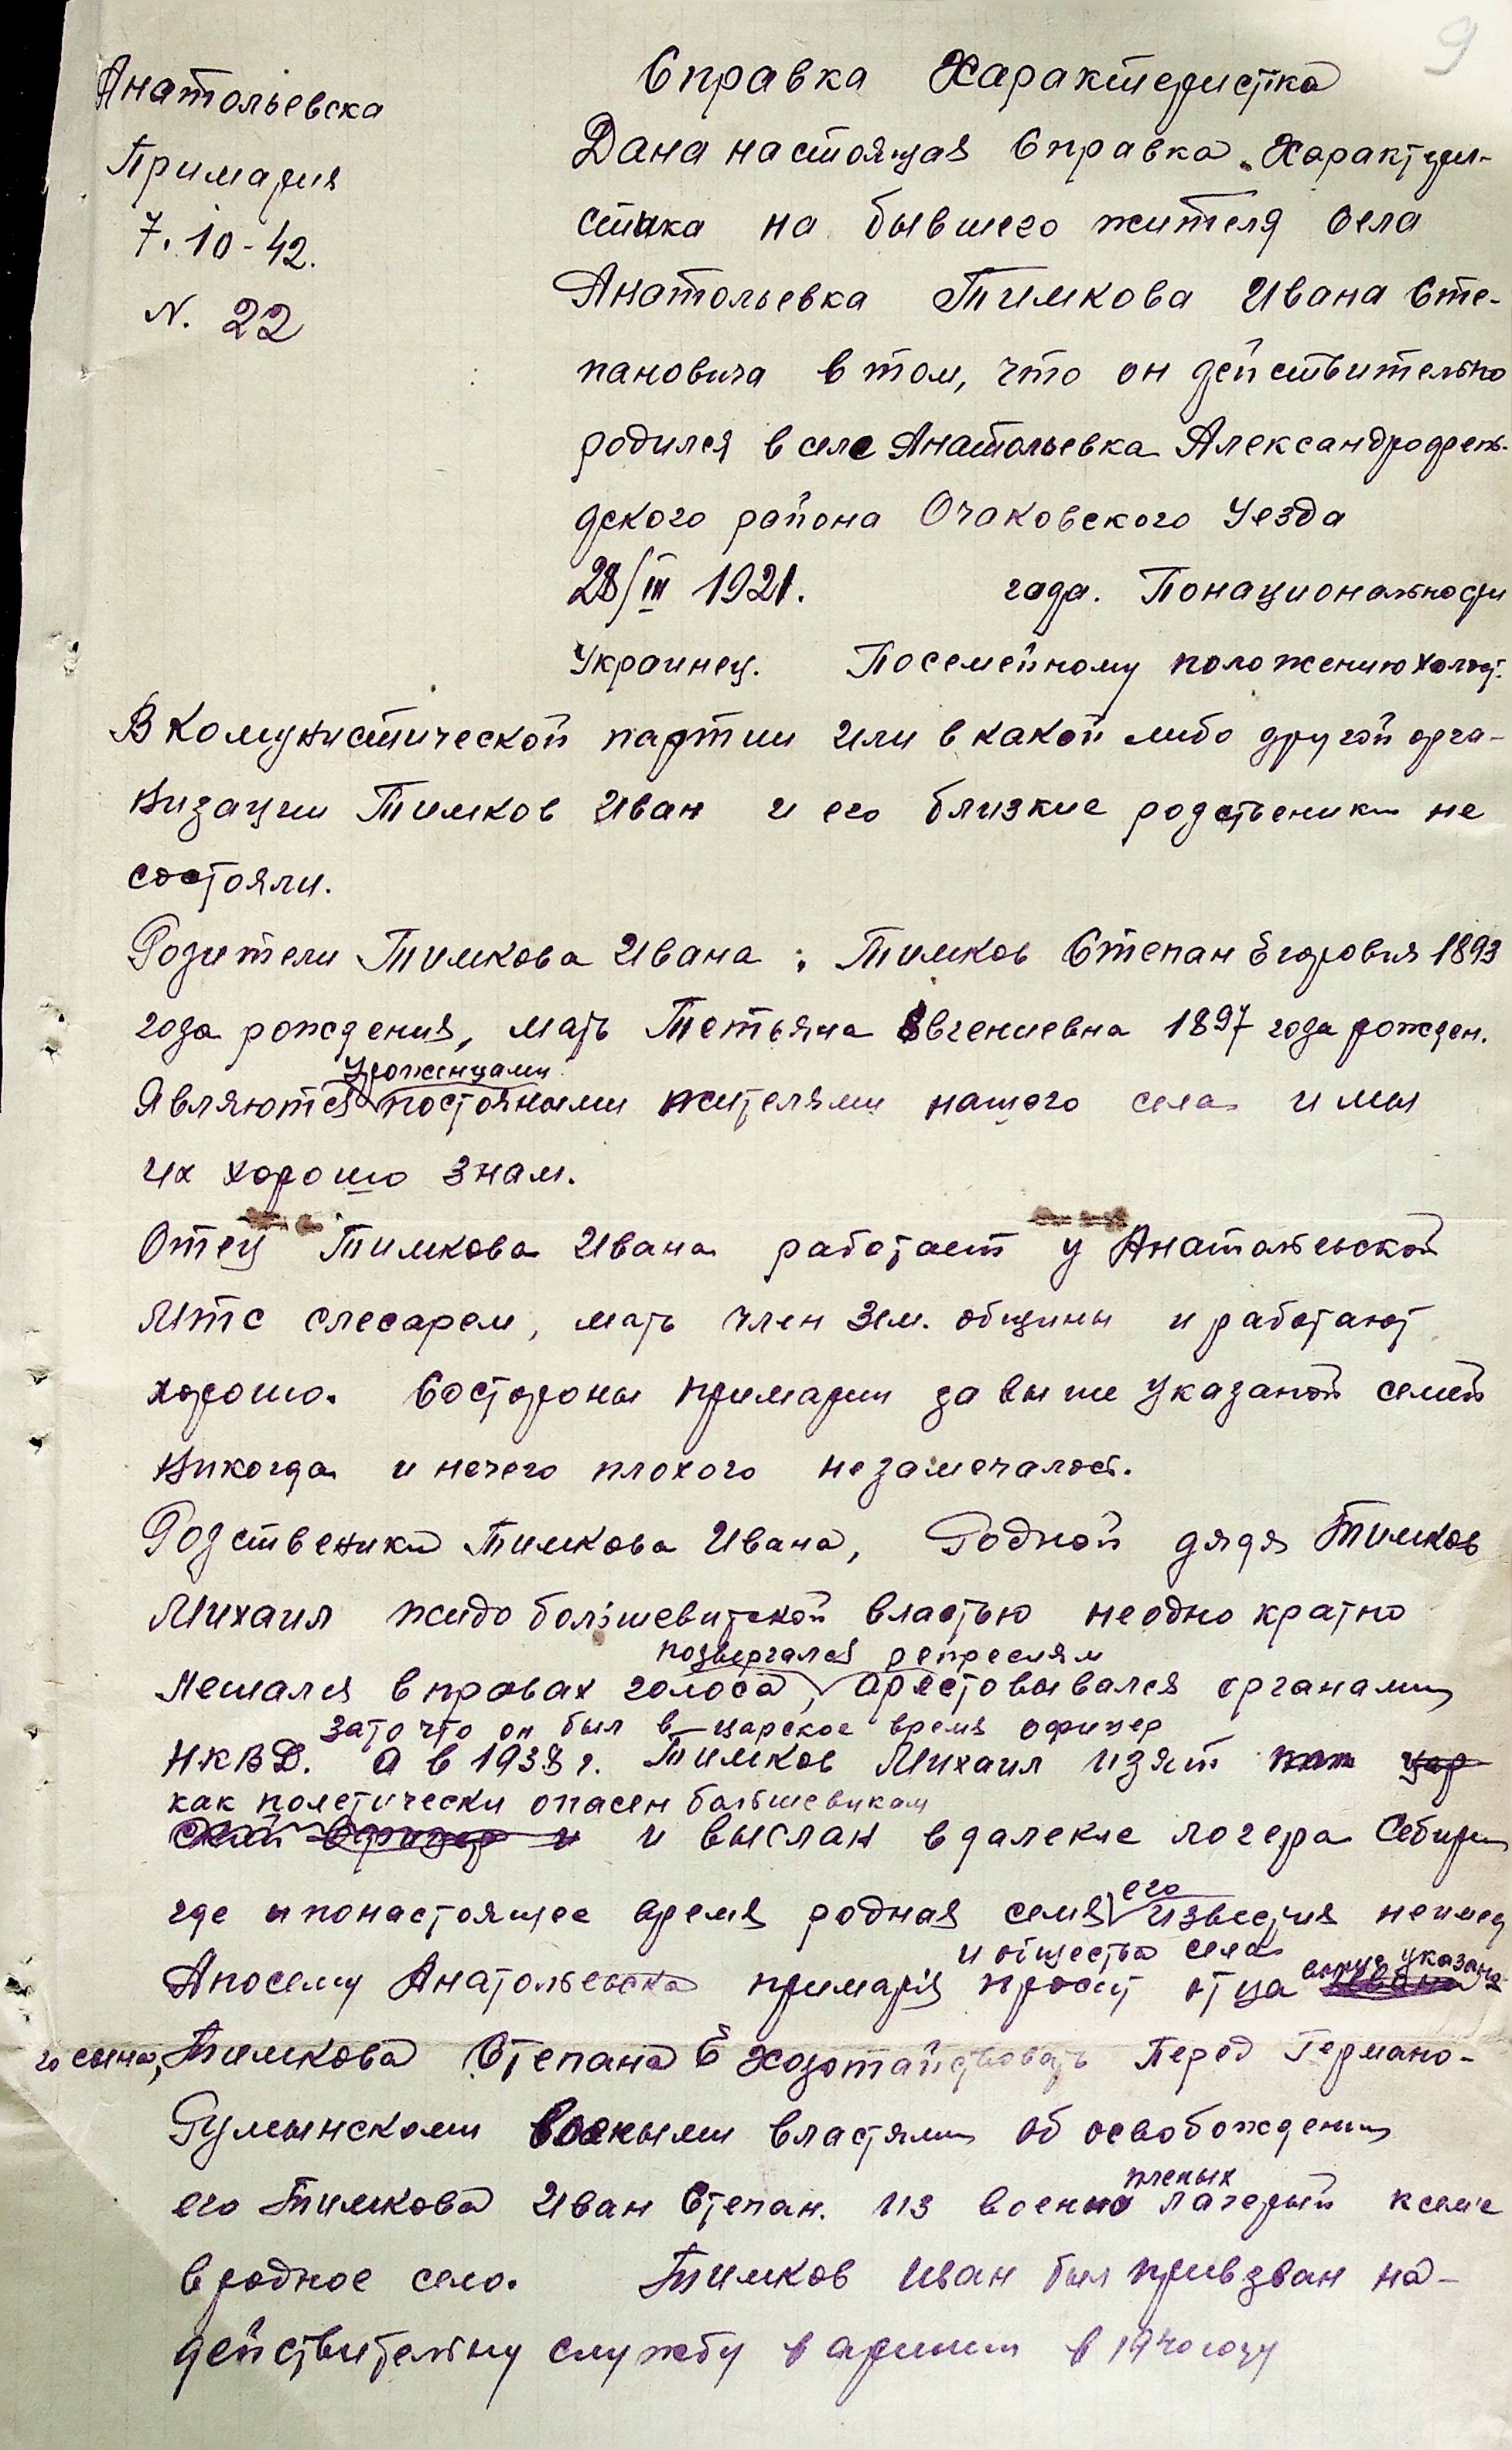 9
Анатольевска
Примария
7.10-42.
N. 22
Справка Характеристка
Дана настоящая Справка Характери-
стика на бывшего жителя села
Анатольевка Тимкова Ивана Сте-
пановича в том, что он действительно
родился в селе Анатольевка Александрофень-
дского района Очаковского Уезда
28/III 1921. года. Понациональности
Украинец. Посемейному положению холост.
В Комунистической партии или в какой либо другой орга-
низации Тимков Иван и его близкие родственики не
состояли.
Родители Тимкова Ивана: Тимков Степан Егорович 1893
года рождения, мать Тетьяна Евгениевна 1897 года рожден.
уроженцами
Являются постояными жителями нашого села и мы
их хорошо знам.
Отец Тимкова Ивана работает у Анатольевской
МТС слесарем, мать член Зем. общины и работают
хорошо. Состороны примарии за выше указаной семей
никогда и нечего плохого незамечалось.
Родственики Тимкова Ивана, Родной дядя Тимков
Михаил жидоболшевитской властью неоднократно
подвергался репресиям
лешался в провах голоса, арестовывался органами
зато что он был в царское время офицер
НКВД. а в 1938 г. Тимков Михаил изят как цар
как полетически опасен большевикам
ской офицер и и выслан в далекие логера Себири
его
где и понастоящее время родная семя известия неимеет
и общество села
Апосему Анатольевска примарiя просит отца выше указано-
го сына, Тимкова Степана Е ходотайствовать Перед Германо-
Румынскоми воеными властями об освобождении
пленых
его Тимкова Иван Степан. из военно лагерый ксеме
в родное село. Тимков Иван был призван на-
действительну службу в армии в 1940 году